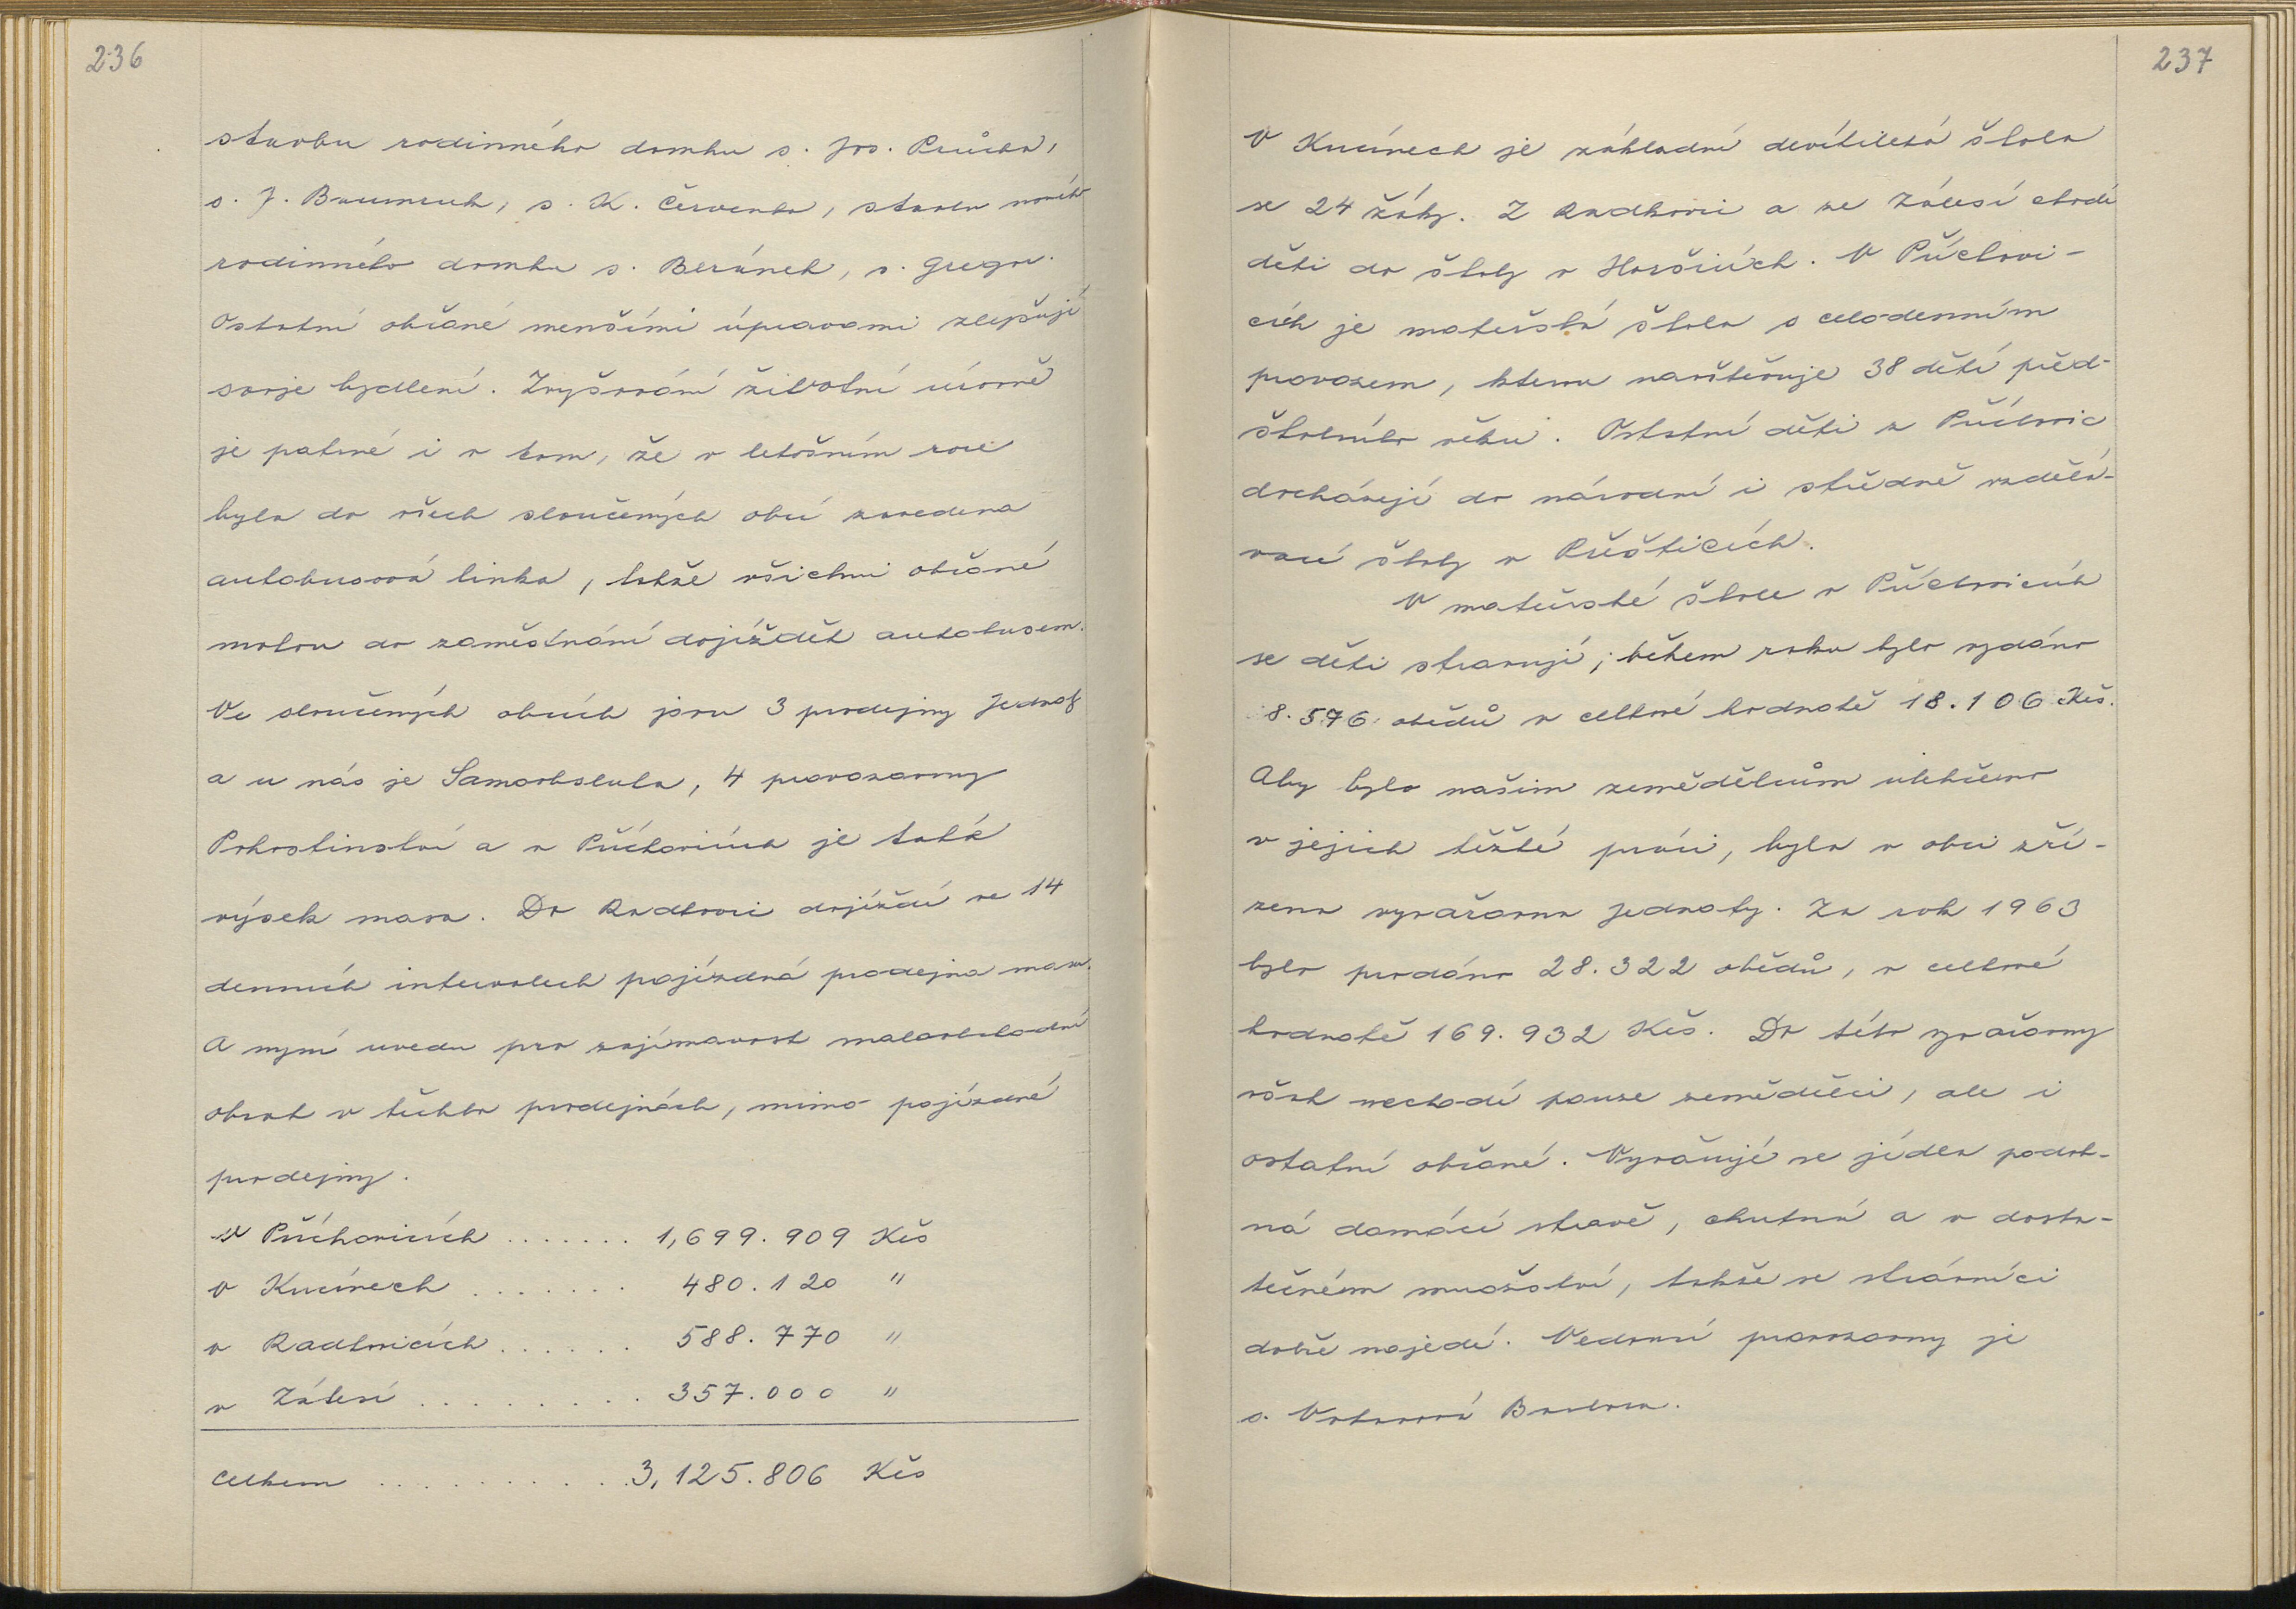 236
stavbu rodinného domku s. Jos. Průcha,
s. J. Baumruk, s. K. Červenka, stavbu nového
rodinného domku s. Beránek, s. Gregor.
Ostatní občané menšími úpravami zlepšují
svoje bydlení. Zvyšování životní úrovně
je patrné i v tom, že v letošním roce
byla do všech sloučených obcí zavedena
autobusová linka, takže všichni občané
mohou do zaměstnání dojíždět autobusem.
Ve sloučených obcích jsou 3 prodejny Jednoty
a u nás je Samoobsluha, 4 provozovny
Pohostinství a v Příchovicích je také
výsek masa. Do Radkovic dojíždí ve 14
denních intervalech pojízdná prodejna masa.
A nyní uvedu pro zajímavost maloobchodní
obrat v těchto prodejnách, mimo pojízdné
prodejny.
V Příchovicích ....... 1,699.909 Kčs
v Kucínech ....... 480.120 "
v Radkovicích ...... 588.770 "
v Zálesí ......... 357.000 "
Celkem .......... 3,125.806 Kčs
237
V Kucínech je základní devítiletá škola
se 24 žáky. Z Radkovic a ze Zálesí chodí
děti do školy v Horšicích. V Příchovi-
cích je mateřská škola s celodenním
provozem, kterou navštěvuje 38 dětí před-
školního věku. Ostatní děti z Příchovic
docházejí do národní i středně vzdělá-
vací školy v Přešticích.
V mateřské škole v Příchovicích
se děti stravují; během roku bylo vydáno
8.576 obědů v celkové hodnotě 18.106 Kčs.
Aby bylo našim zemědělcům ulehčeno
v jejich těžké práci, byla v obci zří-
zena vyvařovna Jednoty. Za rok 1963
bylo prodáno 28.322 obědů, v celkové
hodnotě 169.932 Kčs. Do této vyvařovny
však nechodí pouze zemědělci, ale i
ostatní občané. Vyvařují se jídla podob-
ná domácí stravě, chutná a v dosta-
tečném množství, takže se strávníci
dobře najedí. Vedoucí provozovny je
s.